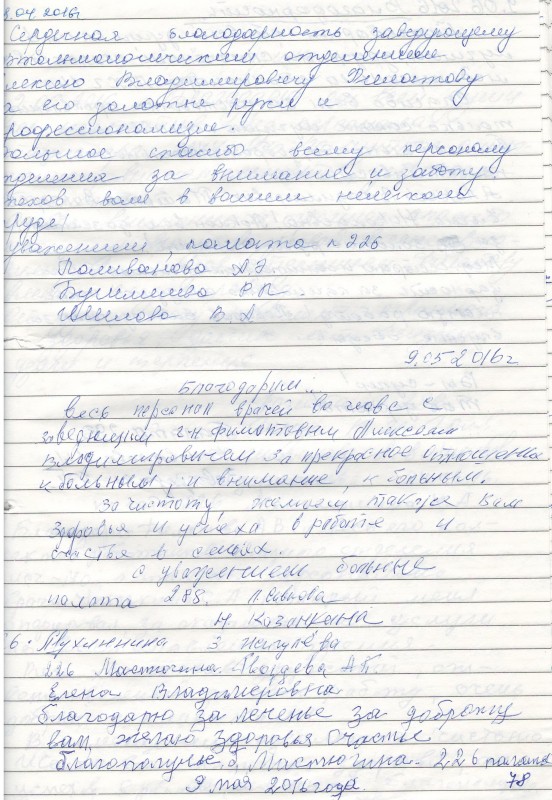 .04 2016г
Сердечная благодарность заведующему
фтальмологическим отделением
лексею Владимировичу Филатову
а его золотые руки и
рофессионализм.
ольшое спасибо всему персоналу
тделения за внимание и заботу.
пехов вам в вашем нелегком
руде!
уважением, палата п 226
Поливанова А.Э
В.А
9.05 2016г
Благодарим:
весь персонал врачей во главе с
заведующим г-н Филатовым Алексеем
владимировичем за прекрасное отношение
к больным, и внимание к больным.
За чистоту, желаем также Вам
Здоровья и успеха в работе и
счастья в семьях.
с уважением больные
палата 288.
Н. Казанкина
226 Мастюгина. Гвоздева А П
Елена Владимеровна
благодарю за леченье за доброту
вам желаю здоровья Счастье
благополучье. Мастюгина - 226 палата
9 мая 2016 года. 78